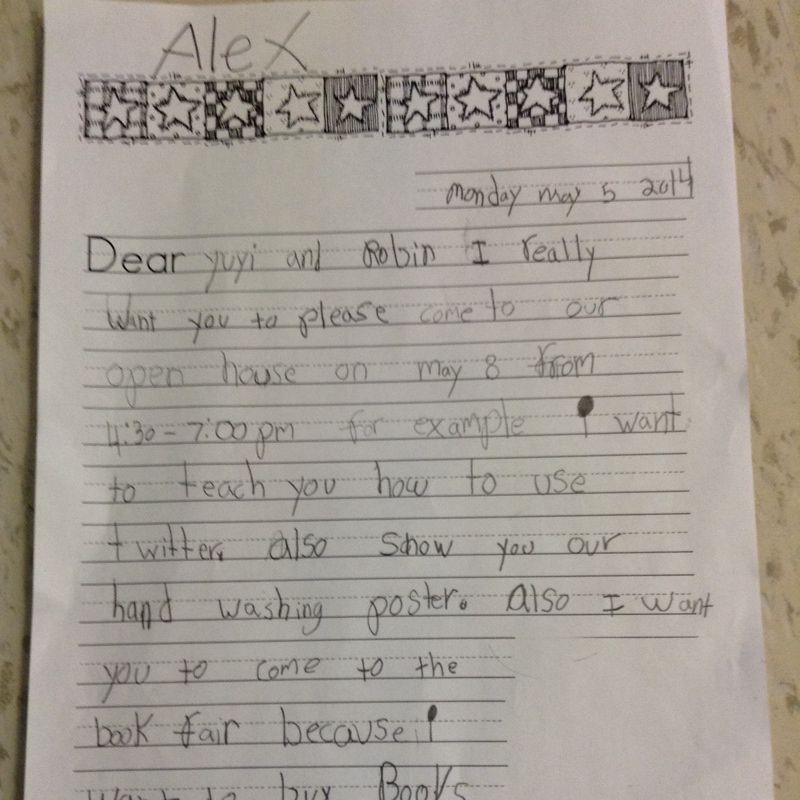 Alex
monday may 5 2014
Dear yuyi and Robin I really
Want you to please come to our
open house on may 8 from
4:30-7:00 pm for example I want
to teach you how to use
twitter. also show you our
hand washing poster. Also I want
you to come to the
book fair because I
want to buy Books